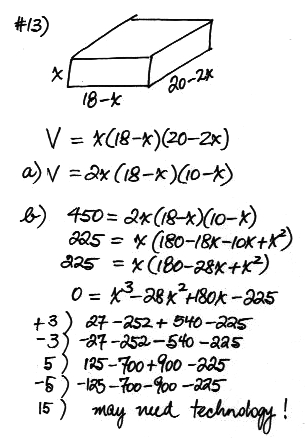 #13)
x
18-x
20-2x
V = x(18-x)(20-2x)
a) V = 2x(18-x)(10-x)
b) 450 = 2x(18-x)(10-x)
225 = x(180-18x-10x+x²)
225 = x(180-28x+x²)
0 = x³-28x²+180x-225
+3) 27-252+540-225
-3) -27-252-540-225
5) 125-700+900-225
-5) -125-700-900-225
15) may need technology!